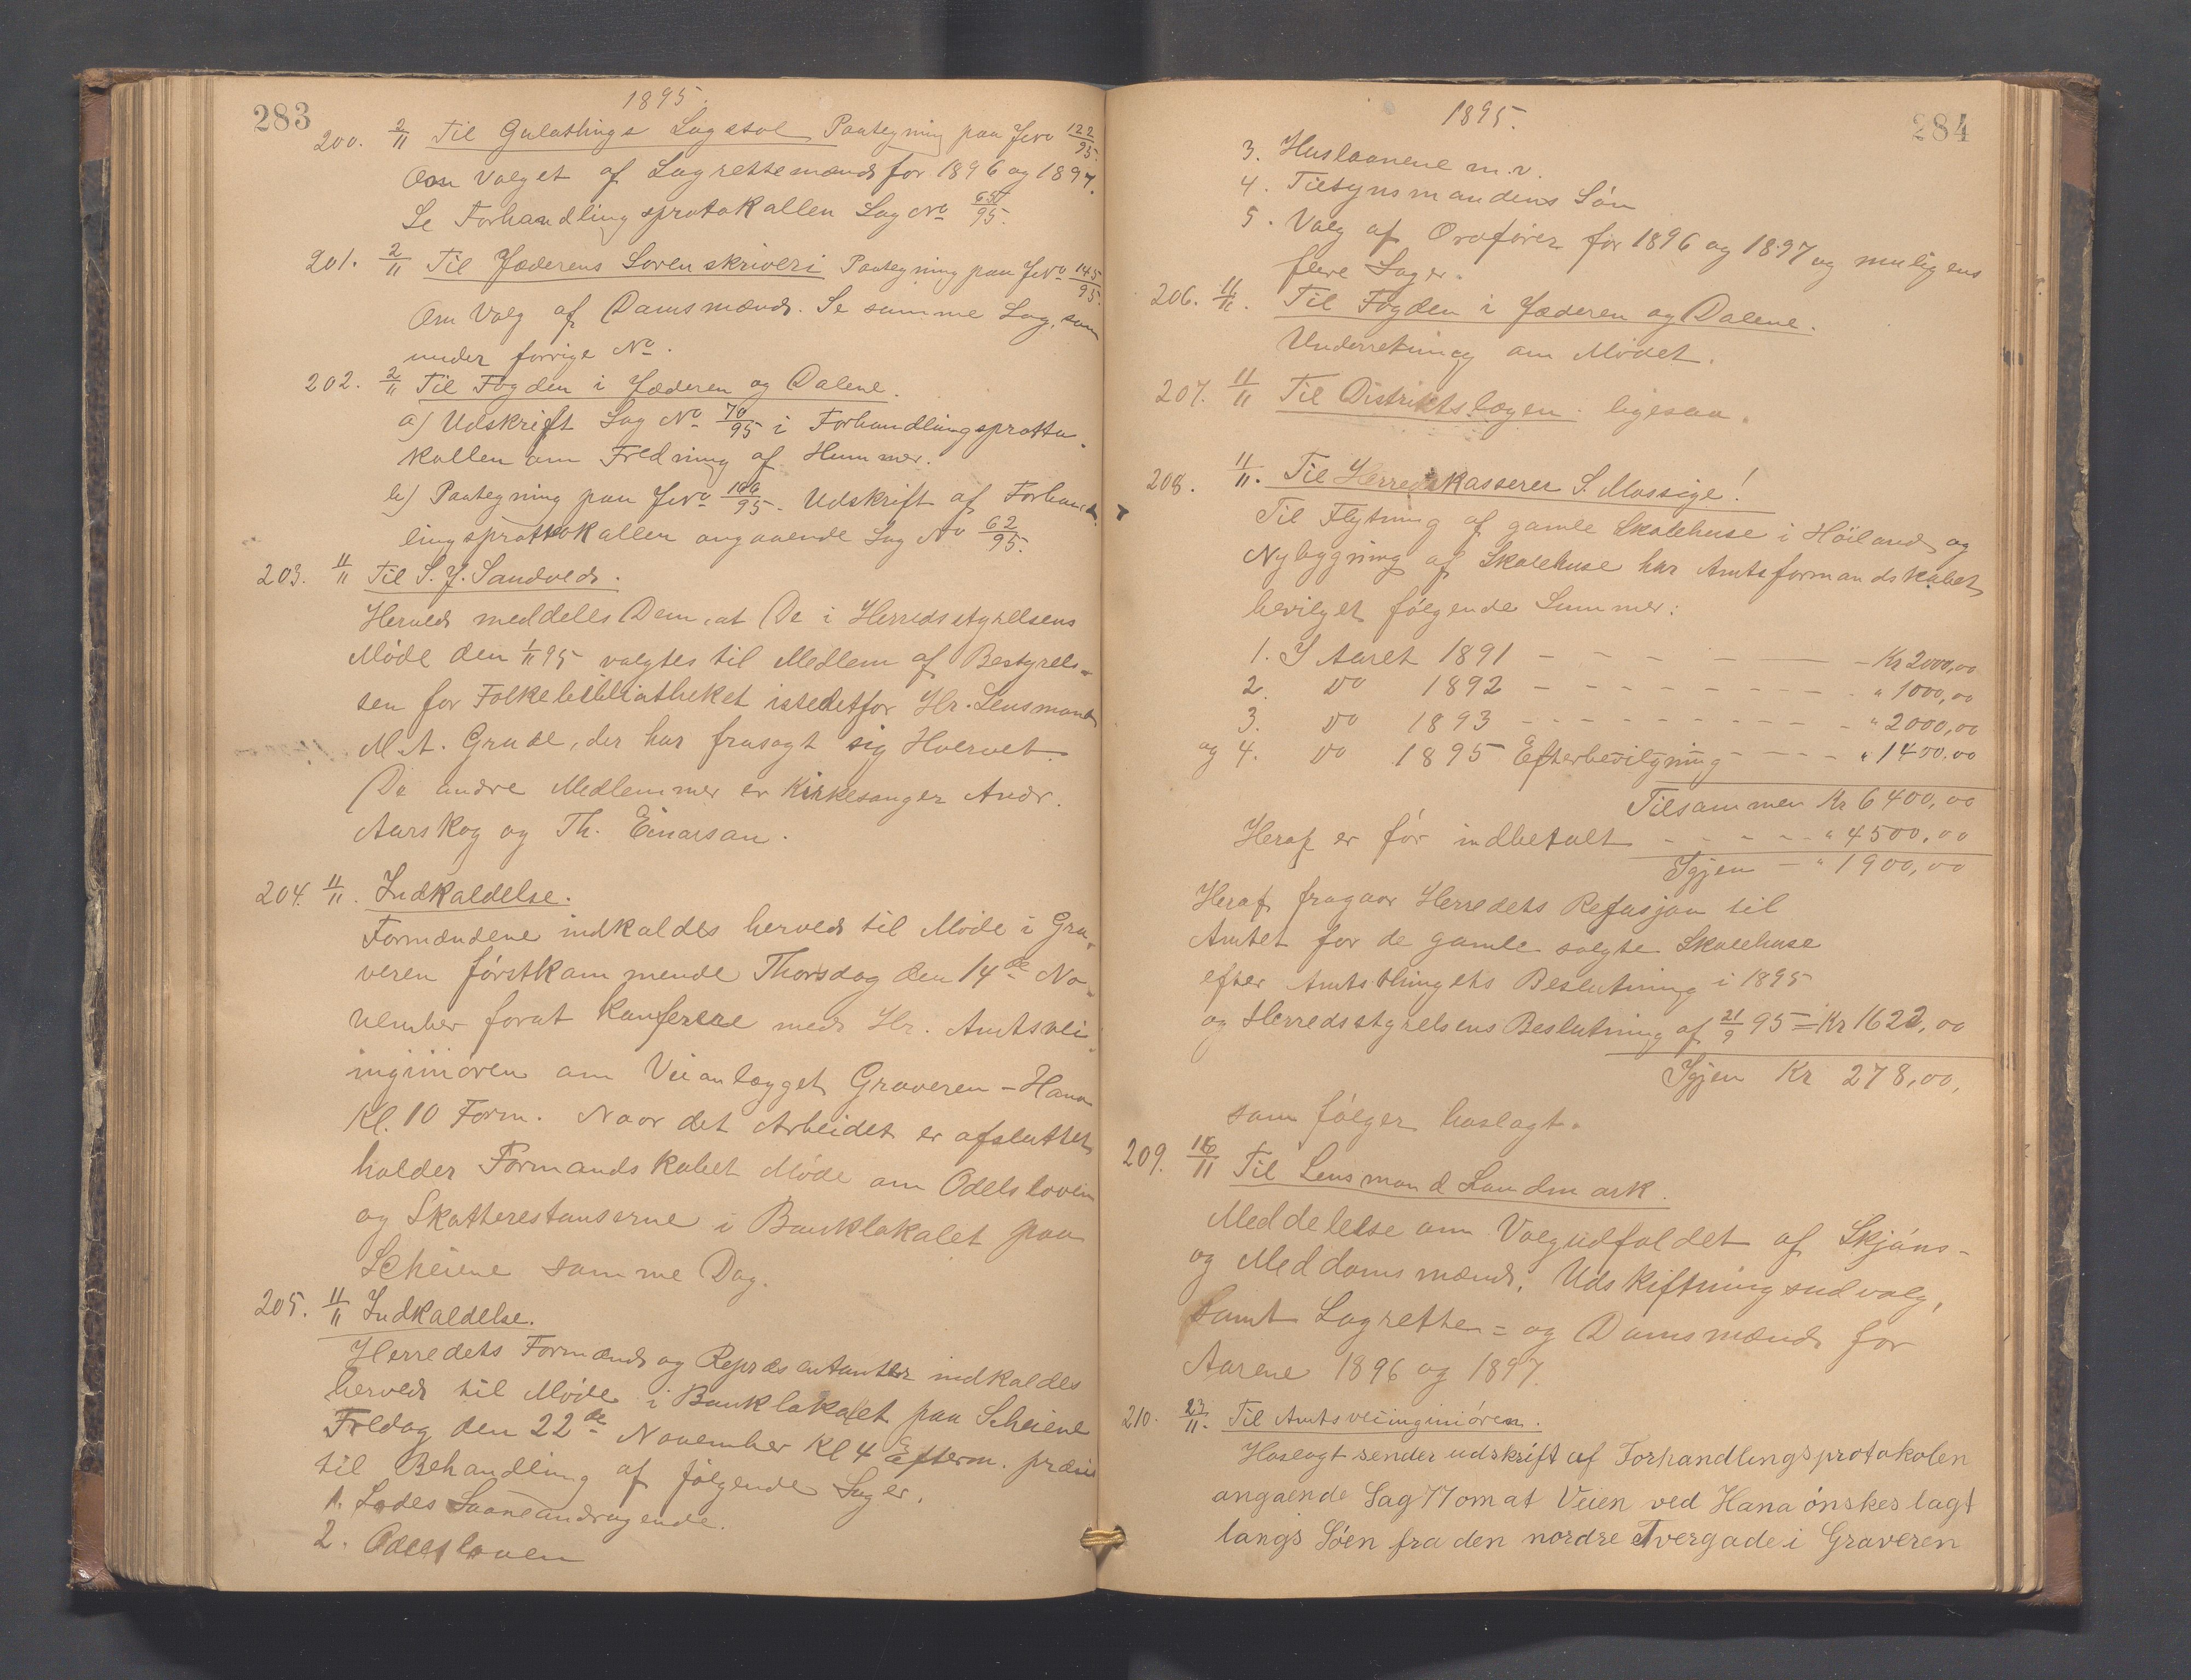 283
1895.
200. 2/11 Til Gulathings Lagstol Paategning paa Jrno 122/95.
Om Valget af Lagrettemænd for 1896 og 1897.
Se Forhandlingsprotokallen Sag No 65/95.
201. 2/11 Til Jæderens Sorenskriveri Paategning paa Jrno 145/95.
Om Valg af Domsmænd. Se samme Sag, som
under forrige No.
202. 2/11 Til Fogden i Jæderen og Dalene.
a) Udskrift Sag No 70/95 i Forhandlingsprotto-
kollen om Fredning af Hummer.
b) Paategning paa Jrno 166/95. Udskrift af Forhand-
lingsprottokallen angaaende Sag No 62/95.
203. 11/11 Til S. J. Sandved.
Herved meddeles Dem, at De i Herredsstyrelsens
Møde den 1/11 95 valgtes til Medlem af Bestyrels-
sen for Folkebibliotheket istedetfor Hr. Lensmand
M. A. Grude, der har frasagt sig Hvervet.
De andre Medlemmer er Kirkesanger Andr.
Aarskog og Th. Einarsan.
204. 11/11. Indkaldelse.
Formændene indkaldes herved til Møde i Gra-
veren førstkommende Thorsdag den 14de No-
vember forat konferere med Hr. Amtsvei-
inginiøren om Veianlægget Graveren - Hana
Kl. 10 Form. Naar det Arbeidet er afsluttet
holder Formandskabet Møde om Odelsloven
og Skatterestanserne i Banklokalet paa
Scheiene samme Dag.
205. 11/11 Indkaldelse.
Herredets Formænd og Repræsentanter indkaldes
herved til Møde i Banklokalet paa Scheiene
Fredag den 22de November Kl 4 Efterm. præsis
til Behandling af følgende Sager.
1. Lodes Laaneandragende.
2. Odelsloven
284
1895.
3. Huslaanene m.v.
4. Tilsynsmandens Løn
5. Valg af Ordfører for 1896 og 1897 og muligens
flere Sager.
206. 11/11. Til Fogden i Jæderen og Dalene.
Underretning om Mødet.
207. 11/11 Til Distriktslægen. ligesaa.
208. 11/11. Til Herredskasserer S. Mossige!
Til Flytning af gamle Skolehuse i Høiland og
Nybygning af Skolehuse har Amtsformandskabet
bevilget følgende Summer:
1. I Aaret 1891 - - - - - - Kr 2000,00
2. Do 1892 - - - - - - - - " 1000,00
3. Do 1893 - - - - - - - - " 2000,00
og 4. Do 1895 Efterbevilgning - - - - " 1400,00
Tilsammen Kr 6400,00
Heraf er før indbetalt - - - - - " 4500,00
Igjen - " 1900,00
Heraf fragaar Herredets Refusjon til
Amtet for de gamle solgte Skolehuse
efter Amtsthingets Beslutning i 1895
og Herredsstyrelsens Beslutning af 21/9 95 = Kr 1622,00
Igjen Kr 278,00,
som følger hoslagt.
209. 16/11 Til Lensmand Landmark.
Meddelelse om Valgudfaldet af Skjøns-
og Meddomsmænd, Udskiftningsudvalg,
samt Lagrette= og Domsmænd for
Aarene 1896 og 1897.
210. 23/11. Til Amtsveiinginiøren.
Hoslagt sender udskrift af Forhandlingsprotokolen
angaende Sag 77 om at Veien ved Hana ønskes lagt
langs Søen fra den nordre Tvergade i Graveren